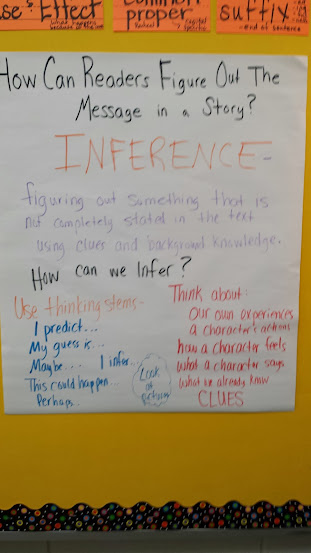 use & Effect
common
proper
suffix
How Can Readers Figure Out The
Message in a Story?
INFERENCE-
figuring out something that is
not completely stated in the text
using clues and background knowledge.
How can we Infer?
Use thinking stems-
I predict...
My guess is...
Maybe... I infer...
This could happen...
Perhaps...
Look at pictures
Think about:
our own experiences
a character's actions
how a character feels
what a character says
what we already know
CLUES